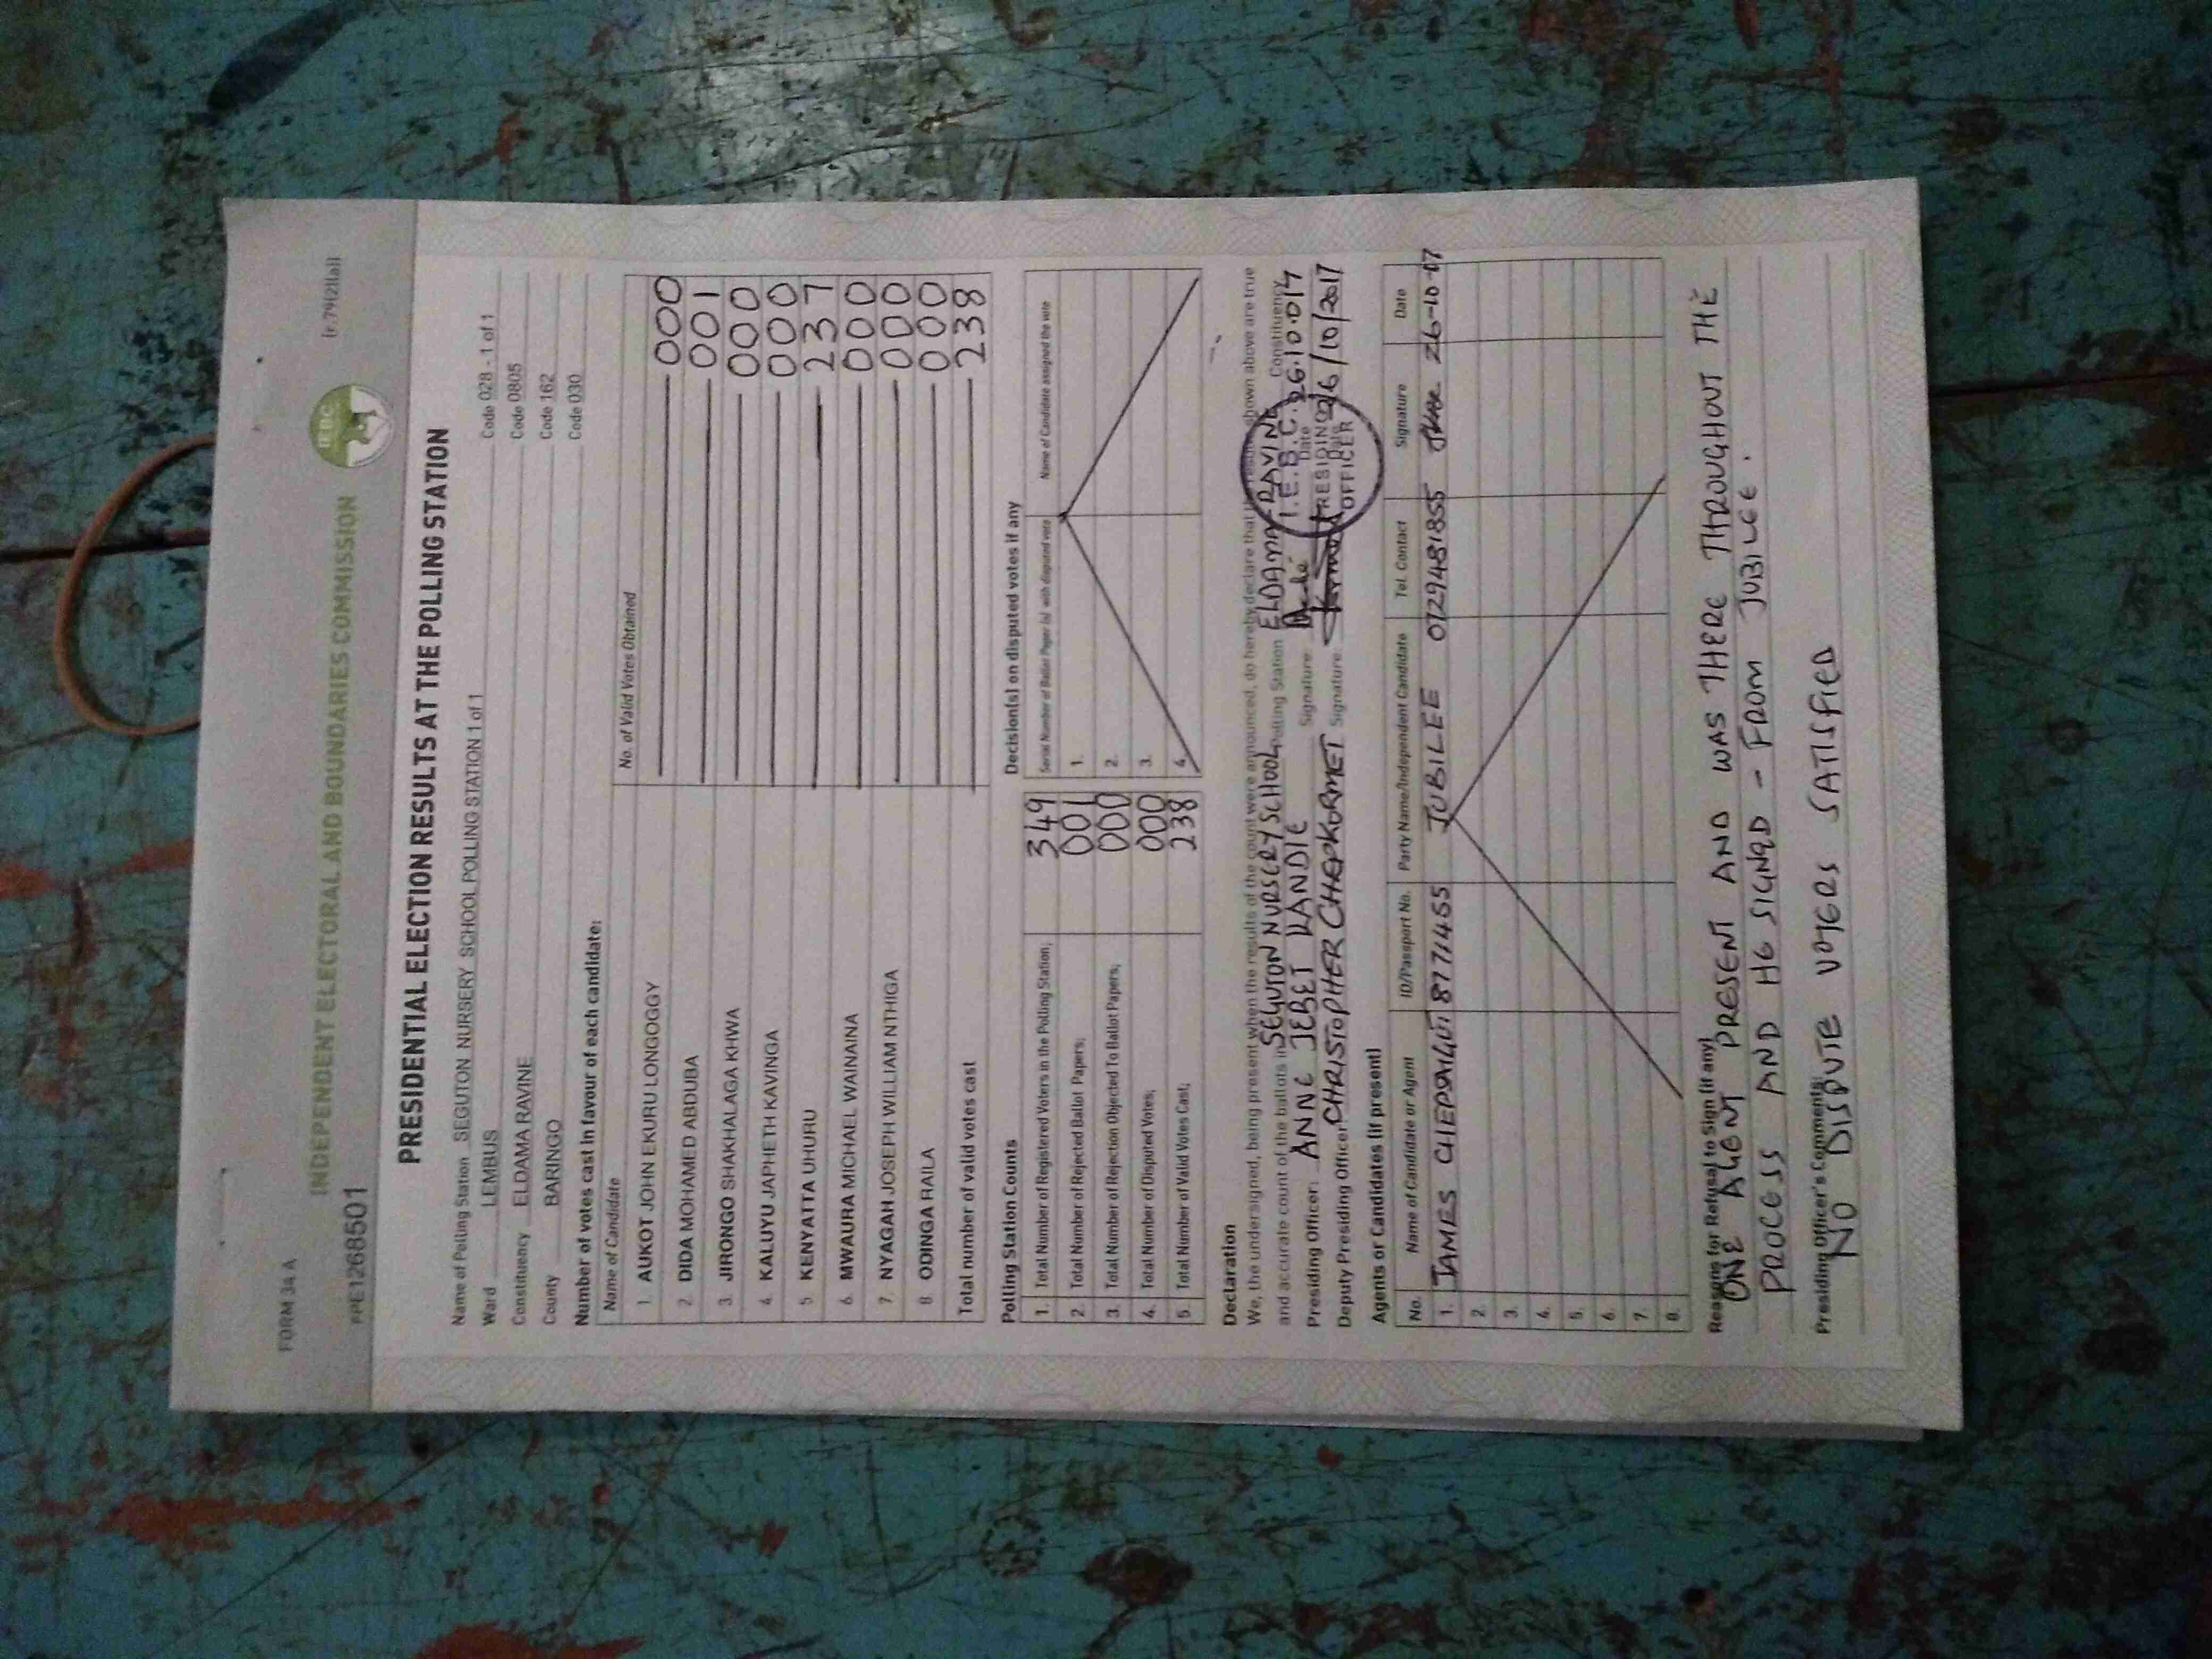 FORM 34 A
(r.79(2)(a))
INDEPENDENT ELECTORAL AND BOUNDARIES COMMISSION
IEBC
PRE1268501
PRESIDENTIAL ELECTION RESULTS AT THE POLLING STATION
Name of Polling Station SEGUTON NURSERY SCHOOL POLLING STATION 1 of 1 Code 028 - 1 of 1
Ward LEMBUS Code 0805
Constituency ELDAMA RAVINE Code 162
County BARINGO Code 030
Number of votes cast in favour of each candidate:
Name of Candidate No. of Valid Votes Obtained
1. AUKOT JOHN EKURU LONGOGGY 000
2. DIDA MOHAMED ABDUBA 001
3. JIRONGO SHAKHALAGA KHWA 000
4. KALUYU JAPHETH KAVINGA 000
5 KENYATTA UHURU 237
6. MWAURA MICHAEL WAINAINA 000
7. NYAGAH JOSEPH WILLIAM NTHIGA 000
8 ODINGA RAILA 000
Total number of valid votes cast 238
Polling Station Counts
1. Total Number of Registered Voters in the Polling Station; 349
2. Total Number of Rejected Ballot Papers; 001
3. Total Number of Rejection Objected To Ballot Papers; 000
4. Total Number of Disputed Votes; 000
5. Total Number of Valid Votes Cast; 238
Decision(s) on disputed votes if any
Serial Number of Ballot Paper (s) with disputed vote Name of Candidate assigned the vote
1.
2.
3.
4.
Declaration
We, the undersigned, being present when the results of the count were announced, do hereby declare that the results shown above are true
and accurate count of the ballots in SEGUTON NURSERY SCHOOL Polling Station ELDAMA RAVINE Constituency
Presiding Officer: ANNE JEBET KANDIE Signature: Date 26.10.017
Deputy Presiding Officer: CHRISTOPHER CHEPKORMET Signature: Date 26/10/2017
I.E.B.C.
PRESIDING
OFFICER
Agents or Candidates (if present)
No. Name of Candidate or Agent ID/Passport No. Party Name/Independent Candidate Tel. Contact Signature Date
1. JAMES 8771455 JUBILEE 0729481855 26-10-17
2.
3.
4.
5.
6.
7.
8.
Reasons for Refusal to Sign (if any)
ONE AGENT PRESENT AND WAS THERE THROUGHOUT THE
PROCESS AND HE SIGNED - FROM JUBILEE.
Presiding Officer's Comments:
NO DISPUTE VOTERS SATISFIED